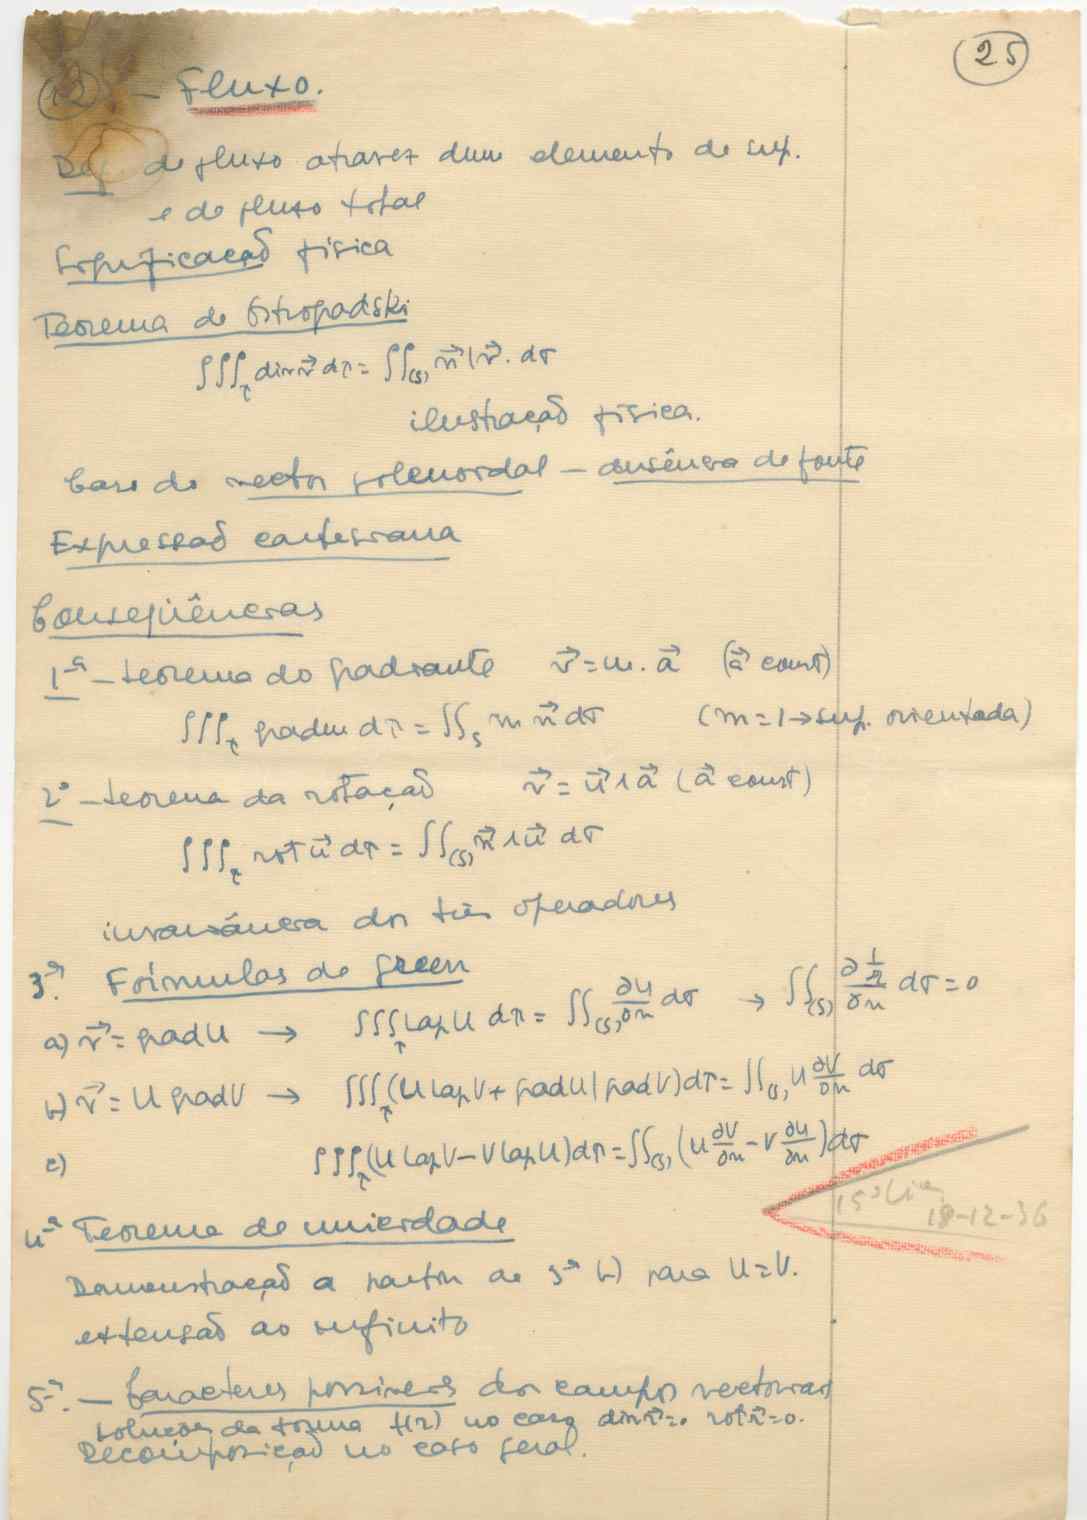 25
12 - Fluxo.
Def. de fluxo atravez dum elemento de sup.
e de fluxo total
Significação física
Teorema de Ostrogadski
∫∫∫_τ div v⃗ dτ = ∫∫_(S) n⃗ | v⃗ . dσ
ilustração física.
Caso do vector solenoidal – ausência de fonte
Expressão cartesiana
Conseqüências
1ª – teorema do gradiante v⃗ = m . a⃗ (a⃗ const)
∫∫∫_τ grad m dτ = ∫∫_S m n⃗ dσ (m = 1 → sup. orientada)
2º – teorema da rotação v⃗ = u⃗ ∧ a⃗ (a⃗ const)
∫∫∫_τ rot u⃗ dτ = ∫∫_(S) n⃗ ∧ u⃗ dσ
invariância dos três operadores
3ª. Fórmulas de green
a) v⃗ = grad U → ∫∫∫_τ lap U dτ = ∫∫_(S) ∂U/∂n dσ → ∫∫_(S) ∂(1/r)/∂n dσ = 0
b) v⃗ = U grad V → ∫∫∫_τ (U lap V + grad U | grad V) dτ = ∫∫_(S) U ∂V/∂n dσ
c) ∫∫∫_τ (U lap V – V lap U) dτ = ∫∫_(S) (U ∂V/∂n – V ∂U/∂n) dσ
15ª liç.
18-12-36
4ª Teorema de unicidade
Demonstração a partir de 3ª b) para U = V.
extensão ao infinito
5ª. – Caracteres possiveis dos campos vectoriais
soluções da forma f(r) no caso div v⃗ = 0 rot v⃗ = 0.
Decomposição no caso geral.